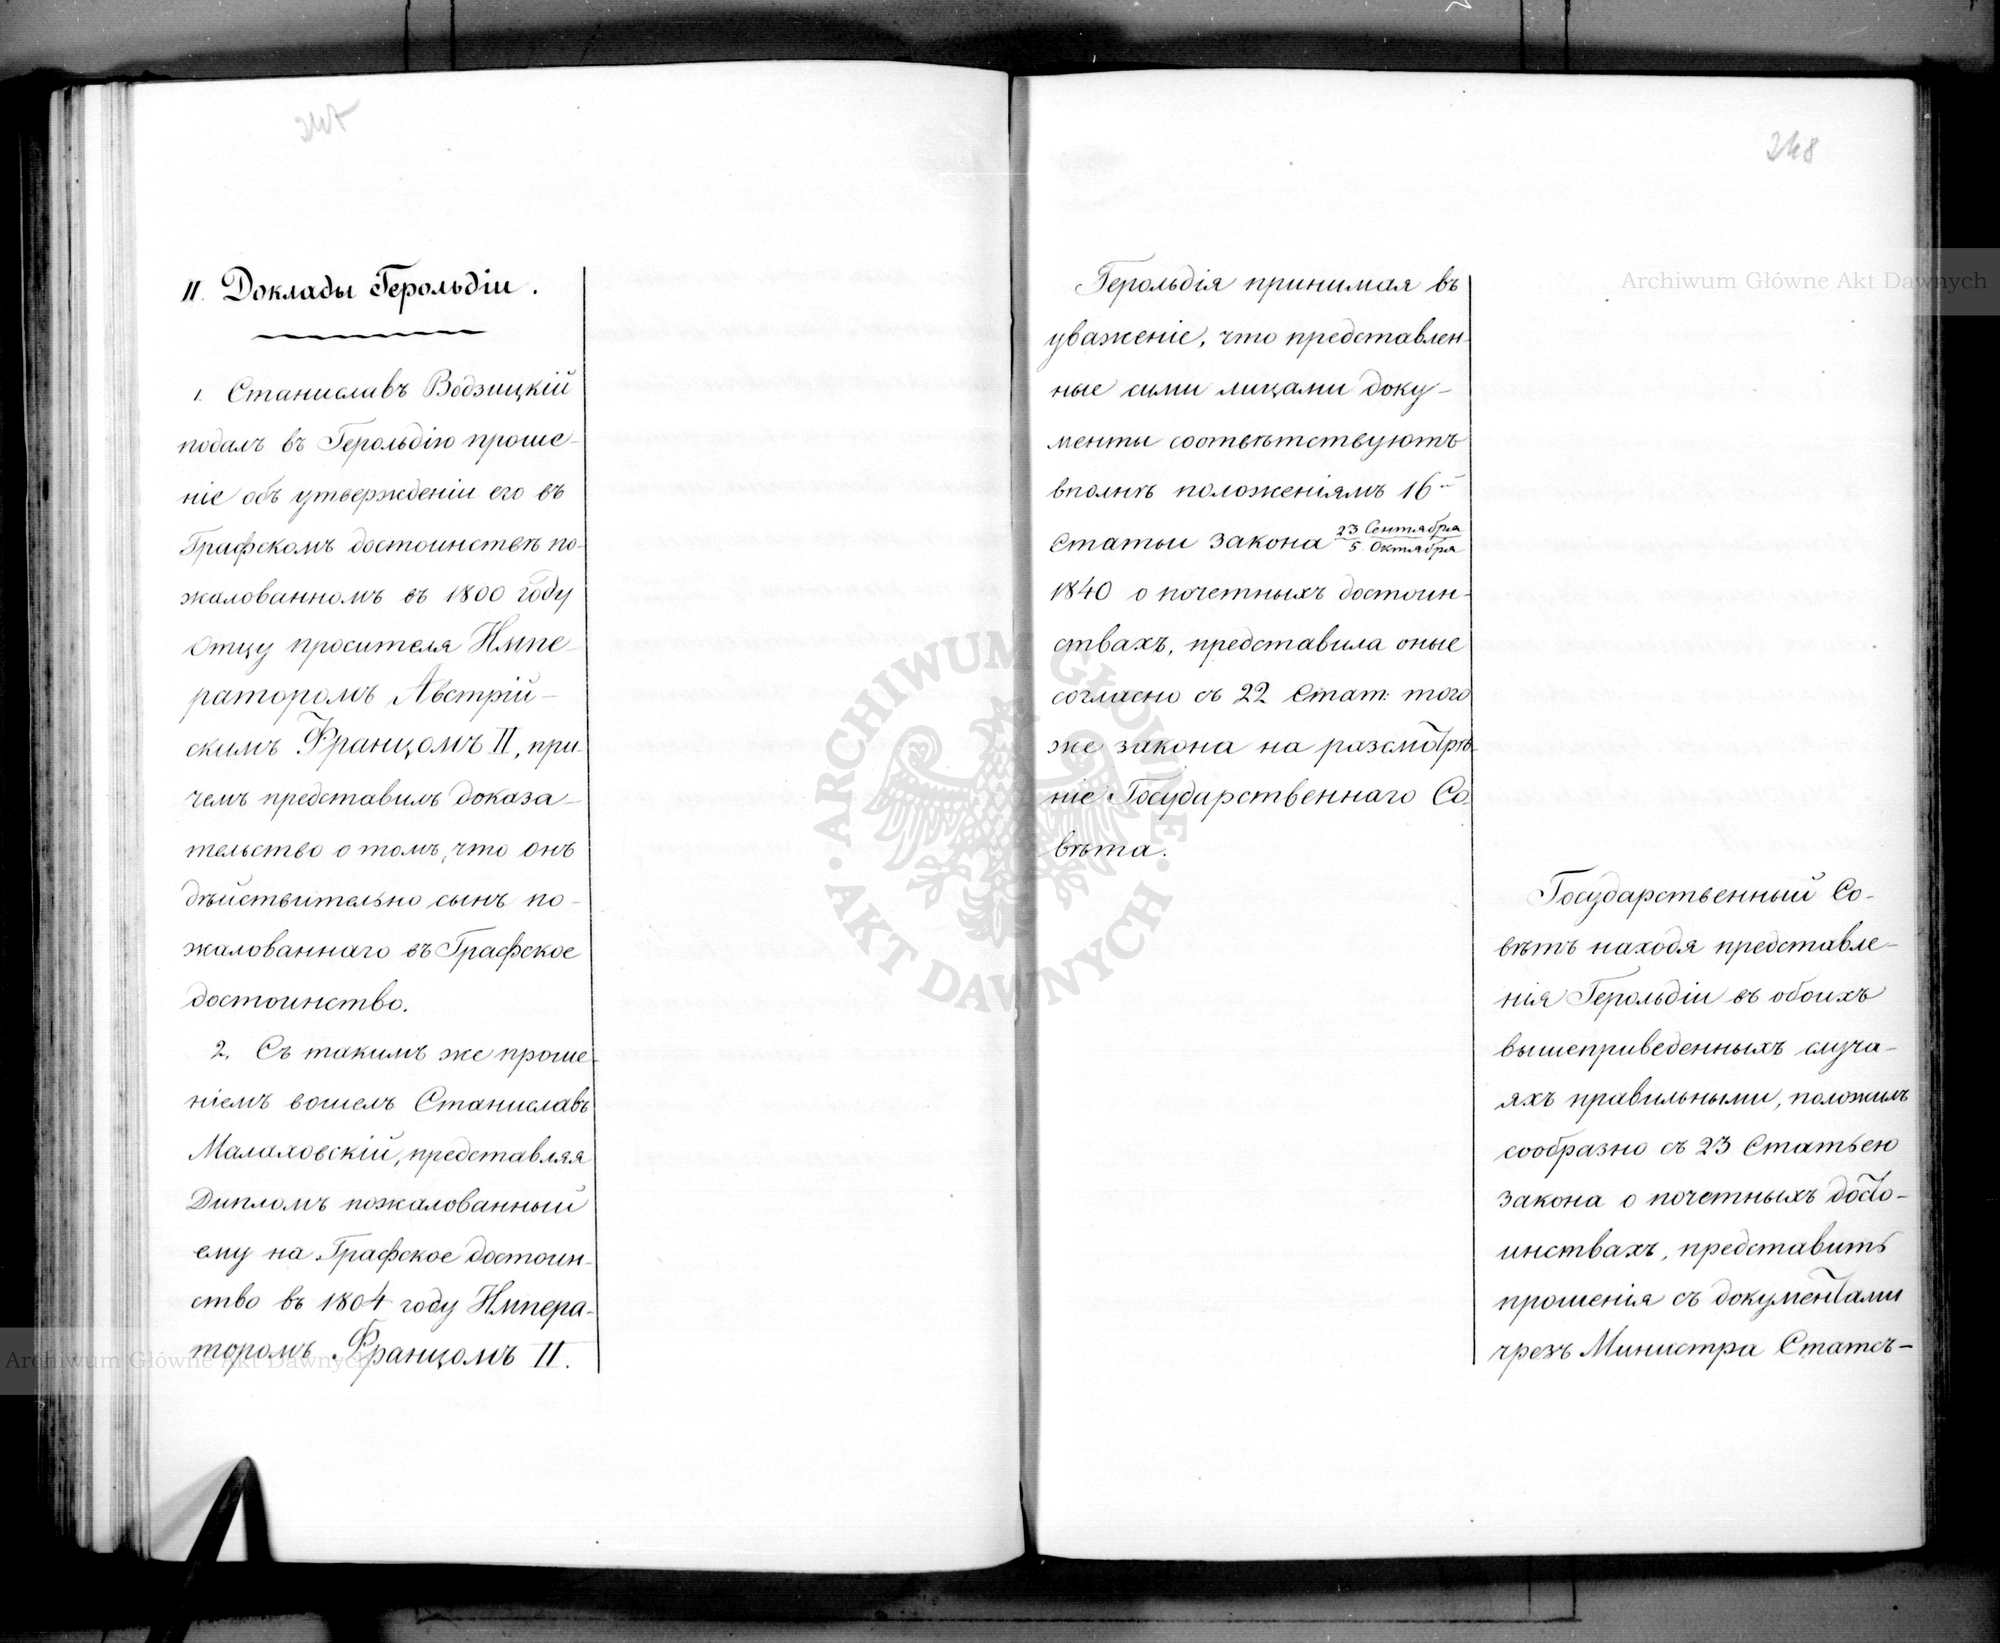 247
II. Доклады Герольдіи.
1. Станиславъ Водзицкій
подалъ въ Герольдію проше-
ніе объ утвержденіи его въ
Графскомъ достоинствѣ по-
жалованномъ въ 1800 году
отцу просителя Импе-
раторомъ Австрій-
скимъ Францомъ II, при-
чемъ представилъ доказа-
тельство о томъ, что онъ
дѣйствительно сынъ по-
жалованнаго въ Графское
достоинство.
2. Съ такимъ же проше-
ніемъ вошелъ Станиславъ
Малаховскій, представляя
Дипломъ пожалованный
ему на Графское достоин-
ство въ 1804 году Импера-
торомъ Францомъ II.
248
Герольдія принимая въ
уваженіе, что представлен-
ные сими лицами доку-
менты соотвѣтствуютъ
вполнѣ положеніямъ 16й
статьи закона 23 Сентября
5 Октября
1840 о почетныхъ достоин-
ствахъ, представила оные
согласно съ 22 Стат: того
же закона на разсмотрѣ-
ніе Государственнаго Со-
вѣта.
Государственный Со-
вѣтъ находя представле-
нія Герольдіи въ обоихъ
вышеприведенныхъ случа-
яхъ правильными, положилъ
сообразно съ 23 Статьею
закона о почетныхъ досто-
инствахъ, представить
прошенія съ документами
чрезъ Министра Статсъ-
Archiwum Główne Akt Dawnych
Archiwum Główne Akt Dawnych
ARCHIWUM GŁÓWNE
AKT DAWNYCH